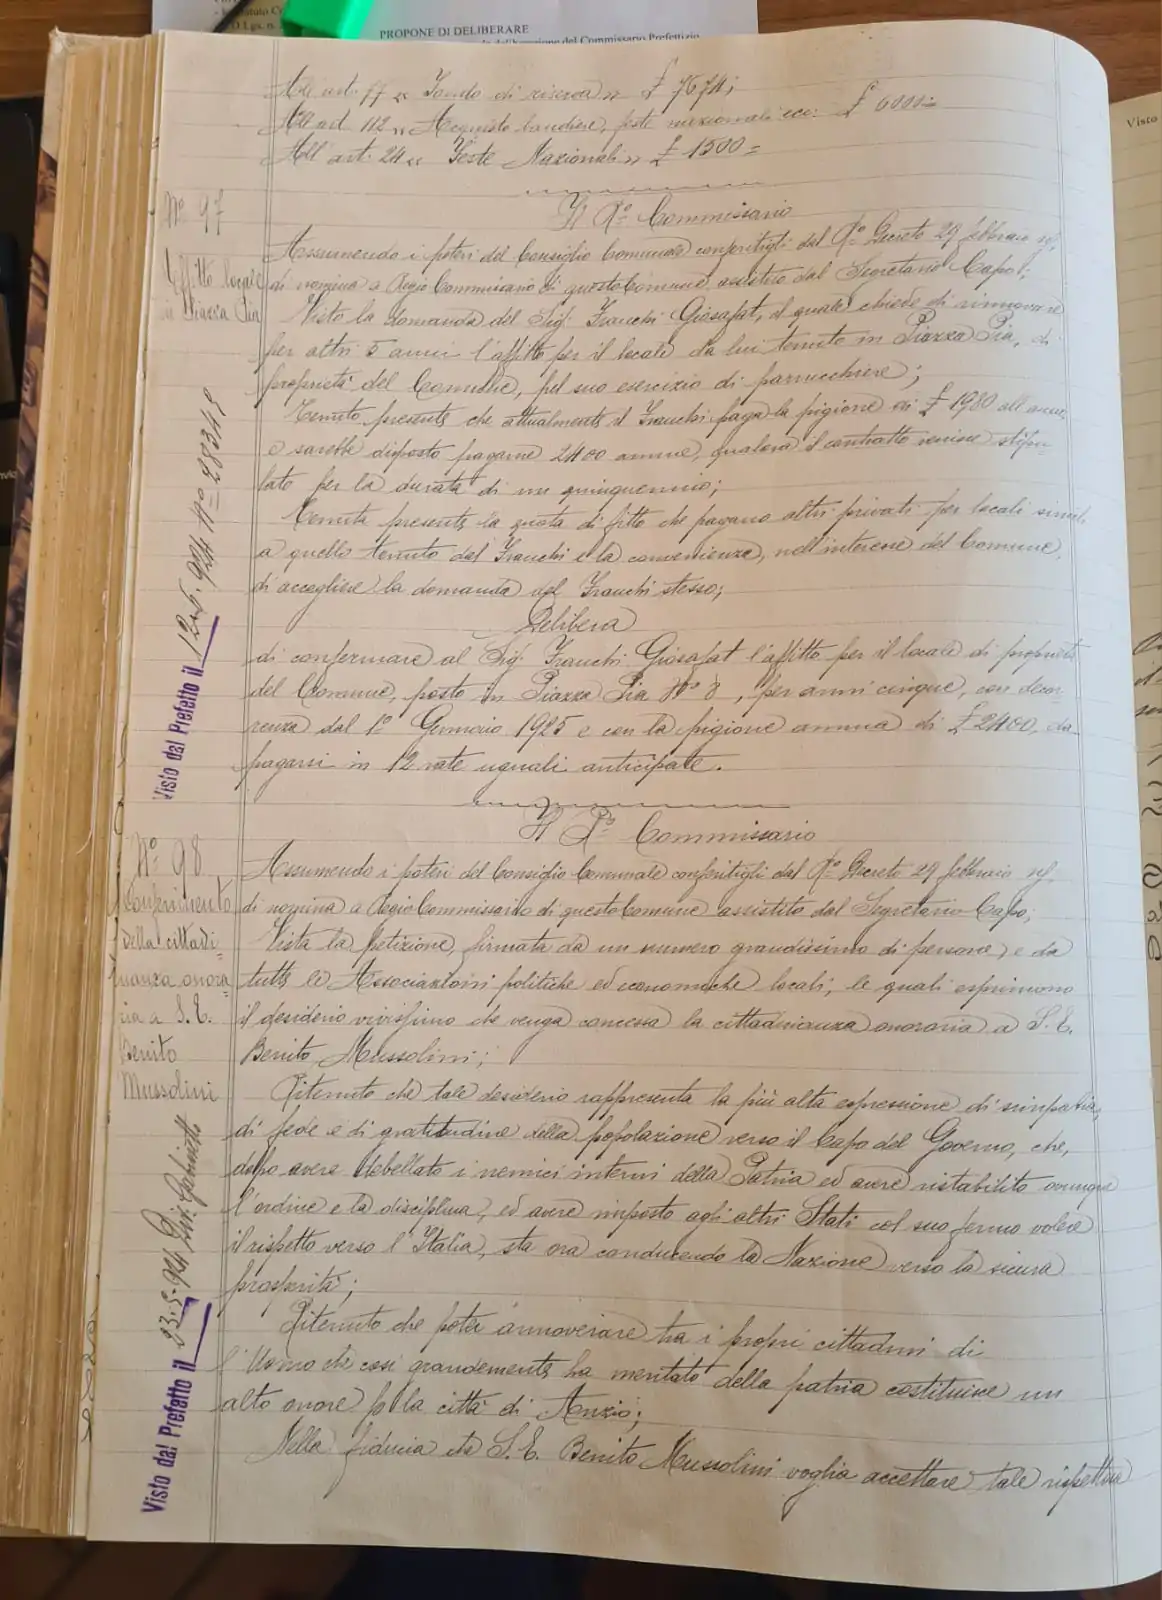 PROPONE DI DELIBERARE
All'art. 77 « Fondo di riserva » £ 7674;
All'art. 112 « Acquisto bandiere, feste nazionali ecc. £ 6000=
All'art. 24 « Feste Nazionali » £ 1500=
Visto
Nº 97
Affitto locale
in Piazza Pia
Il Rº Commissario
Assumendo i poteri del Consiglio Comunale conferitigli dal Rº Decreto 29 febbraio
di nomina a Regio Commissario di questo Comune, assistito dal Segretario-Capo;
Vista la domanda del Sig. Franchi Giosafat, il quale chiede di rinnovare
per altri 5 anni l'affitto per il locale da lui tenuto in Piazza Pia, di
proprietà del Comune, pel suo esercizio di parrucchiere;
Tenuto presente che attualmente il Franchi paga la pigione di £ 1980 all'anno
e sarebbe disposto pagarne 2400 annue, qualora il contratto venisse stipu
lato per la durata di un quinquennio;
Tenuta presente la quota di fitto che pagano altri privati per locali simili
a quello tenuto dal Franchi e la convenienza, nell'interesse del Comune,
di accogliere la domanda del Franchi stesso;
Delibera
di confermare al Sig. Franchi Giosafat l'affitto per il locale di proprietà
del Comune, posto in Piazza Pia Nº 8, per anni cinque, con decor
renza dal 1º Gennaio 1925 e con la pigione annua di £ 2400, da
pagarsi in 12 rate uguali anticipate.
Visto dal Prefetto il 924 Nº 28348
Nº 98
Conferimento
della cittadi-
nanza onora
ria a S. E.
Benito
Mussolini
Il Rº Commissario
Assumendo i poteri del Consiglio Comunale conferitigli dal Rº Decreto 29 febbraio
di nomina a Regio Commissario di questo Comune assistito dal Segretario-Capo;
Vista la petizione, firmata da un numero grandissimo di persone e da
tutte le Associazioni politiche ed economiche locali, le quali esprimono
il desiderio vivissimo che venga concessa la cittadinanza onoraria a S. E.
Benito Mussolini;
Ritenuto che tale desiderio rappresenta la più alta espressione di simpatia,
di fede e di gratitudine della popolazione verso il Capo del Governo, che,
dopo avere debellato i nemici interni della Patria ed avere ristabilito ovunque
l'ordine e la disciplina, ed avere imposto agli altri Stati col suo fermo volere
il rispetto verso l'Italia, sta ora conducendo la Nazione verso la sicura
prosperità;
Ritenuto che poter annoverare tra i propri cittadini di
l'Uomo che così grandemente ha meritato della patria costituisce un
alto onore per la città di Anzio;
Nella fiducia che S. E. Benito Mussolini voglia accettare tale
Visto dal Prefetto il 23.5.924 Div. Gabinetto